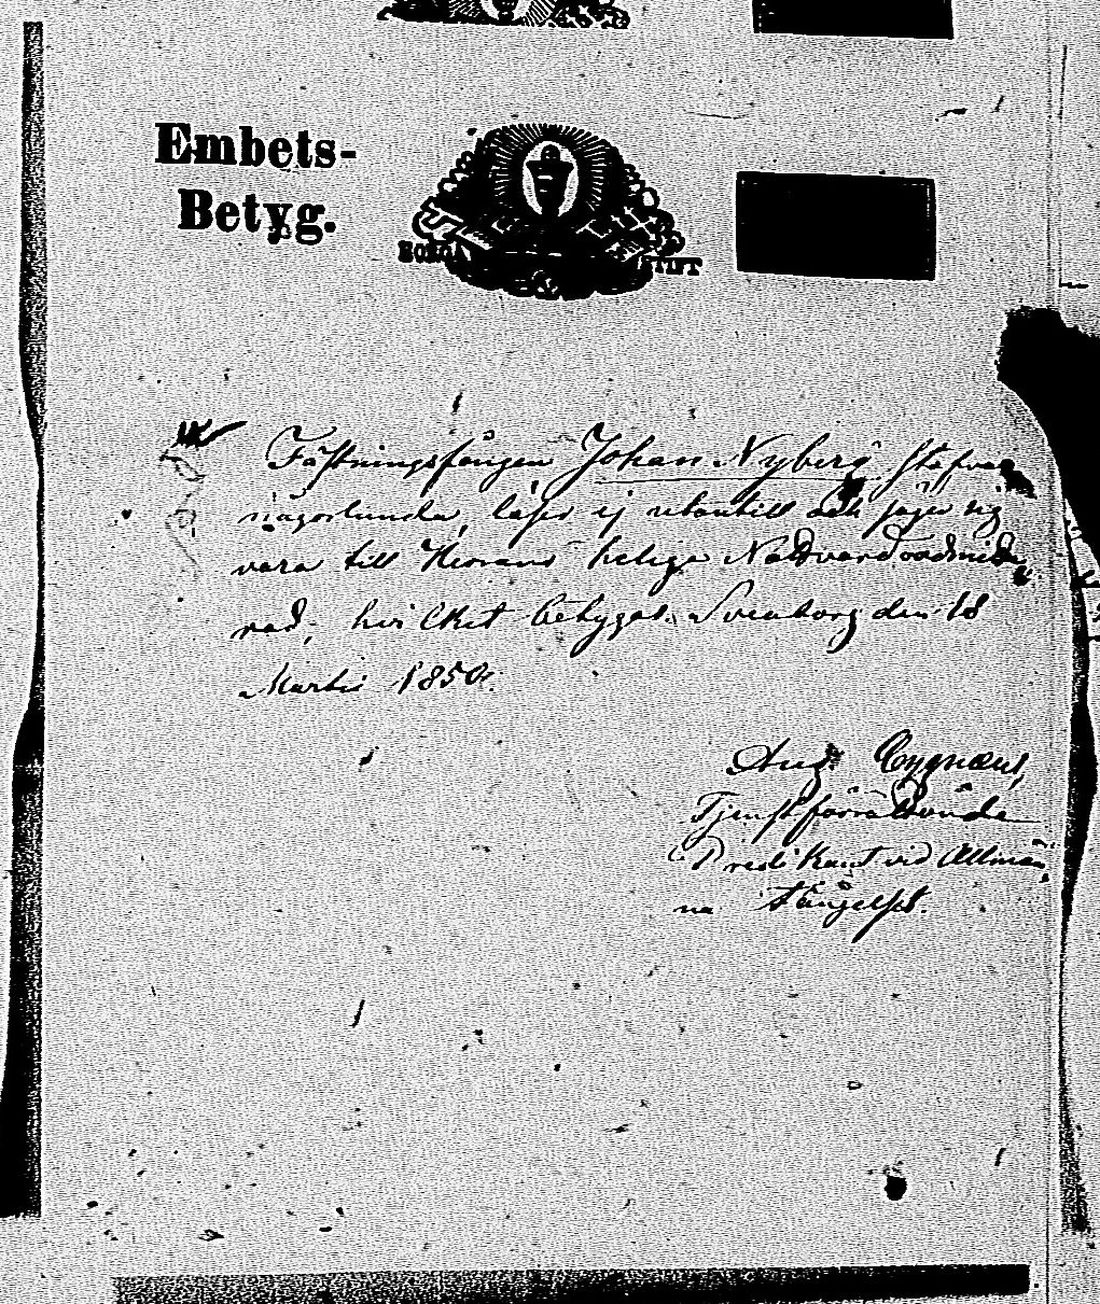 Embets-
Betyg.
BORGÅ STIFT
Fästningsfången Johan Nyberg stafvar
någorlunda, läser ej utantill och säger sig
vara till Herrans heliga Nattvard oadmitte
rad, hvilket betygas. Sveaborg den 18
Martii 1850.
Aug. Cygnæus,
Tjenstförrättande
Predikant vid Allmän
na Fängelset.